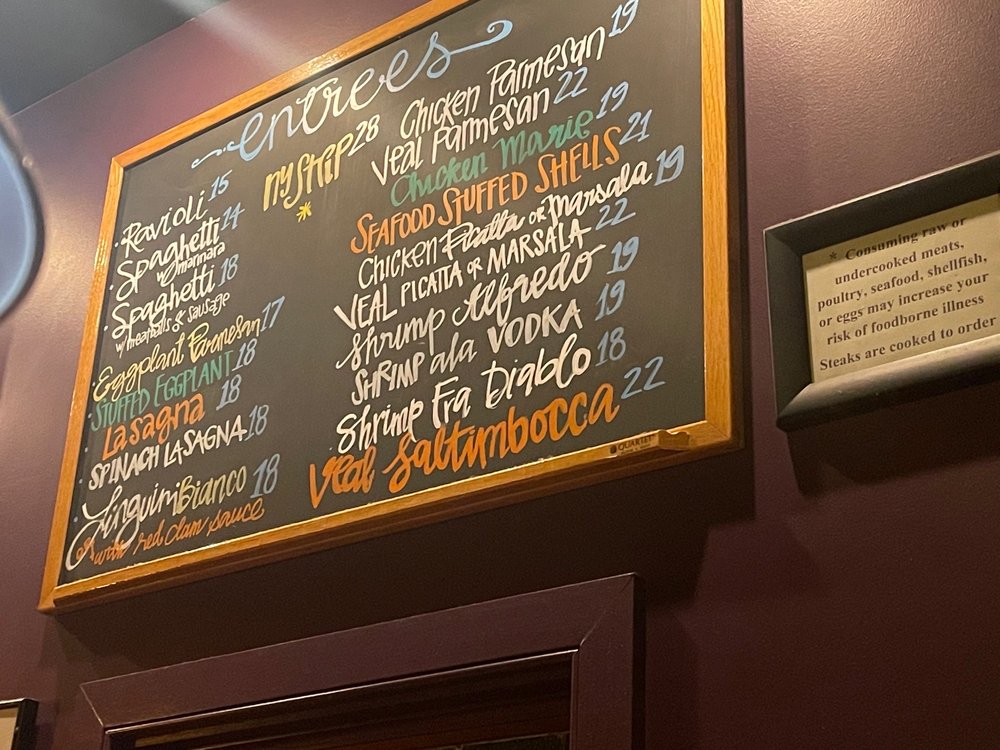 entrees
Ravioli 15
Spaghetti 14
w/ mannara
Spaghetti 18
w/ meatballs & sausage
Eggplant Parmesan 17
STUFFED EGGPLANT 18
Lasagna 18
SPINACH LASAGNA 18
Linguini Bianco 18
or with red clam sauce
NY STRIP 28
*
Chicken Parmesan 19
Veal Parmesan 22
Chicken Marie 19
SEAFOOD STUFFED SHELLS 21
Chicken Picatta or Marsala 19
VEAL PICATTA or MARSALA 22
Shrimp Alfredo 19
SHRIMP ala VODKA 19
Shrimp Fra Diablo 18
Veal Saltimbocca 22
QUARTET
* Consuming raw or
undercooked meats,
poultry, seafood, shellfish,
or eggs may increase your
risk of foodborne illness
Steaks are cooked to order